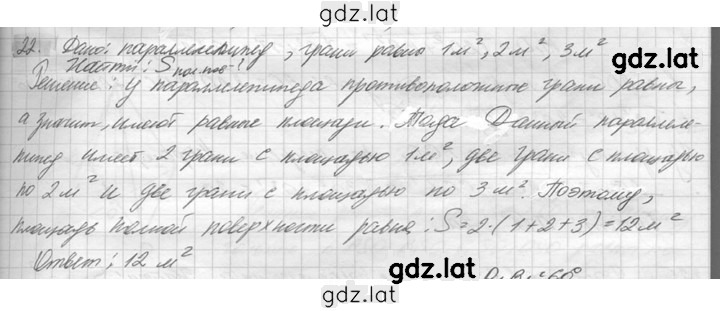 gdz.lat
22. Дано: параллелепипед, грани равны 1м², 2м², 3м²
Найти: Sпол.пов-?
Решение: У параллелепипеда противоположные грани равны,
а значит, имеют равные площади. Тогда Данный параллеле-
пипед имеет 2 грани с площадью 1м², две грани с площадью
по 2м² и две грани с площадью по 3м². Поэтому,
площадь полной поверхности равна: S=2·(1+2+3)=12м²
Ответ: 12 м²
gdz.lat
gdz.lat
gdz.lat
gdz.lat